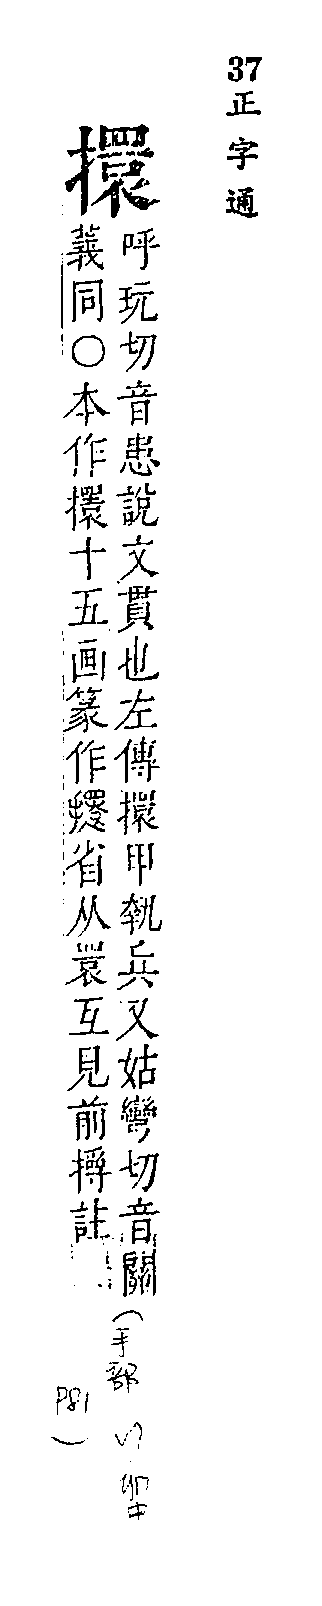 37
正字通
擐
呼玩切音患說文貫也左傳擐甲執兵又姑彎切音關
義同○本作擐十五画篆作擐省从睘互見前捋註
(手部
P81)